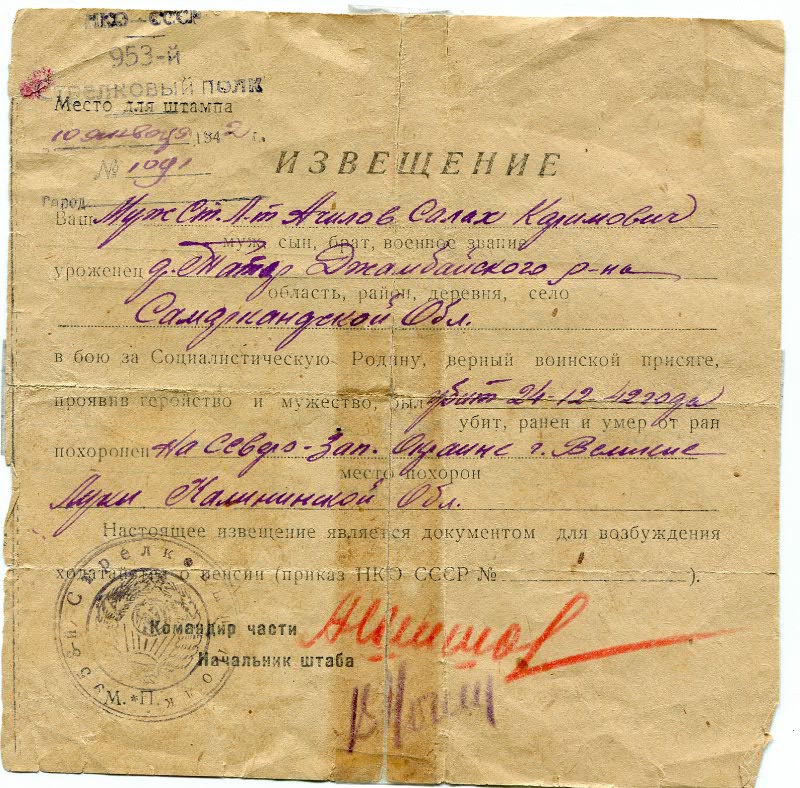 НКО–СССР
953-й
Стрелковый полк
Место для штампа
10 января 1942 г.
№ 1091
Город
ИЗВЕЩЕНИЕ
Ваш Муж Ст. Л-т Ачилов Салах Каримович
муж, сын, брат, военное звание
уроженец д. Татар Джамбайского р-на
область, район, деревня, село
Самаркандской Обл.
в бою за Социалистическую Родину, верный воинской присяге,
проявив геройство и мужество, был убит 24-12-42 года
убит, ранен и умер от ран
похоронен на Северо-Зап. Окраине г. Великие
место похорон
Луки Калининской Обл.
Настоящее извещение является документом для возбуждения
ходатайства о пенсии (приказ НКО СССР № ).
Командир части
Начальник штаба
М. П.